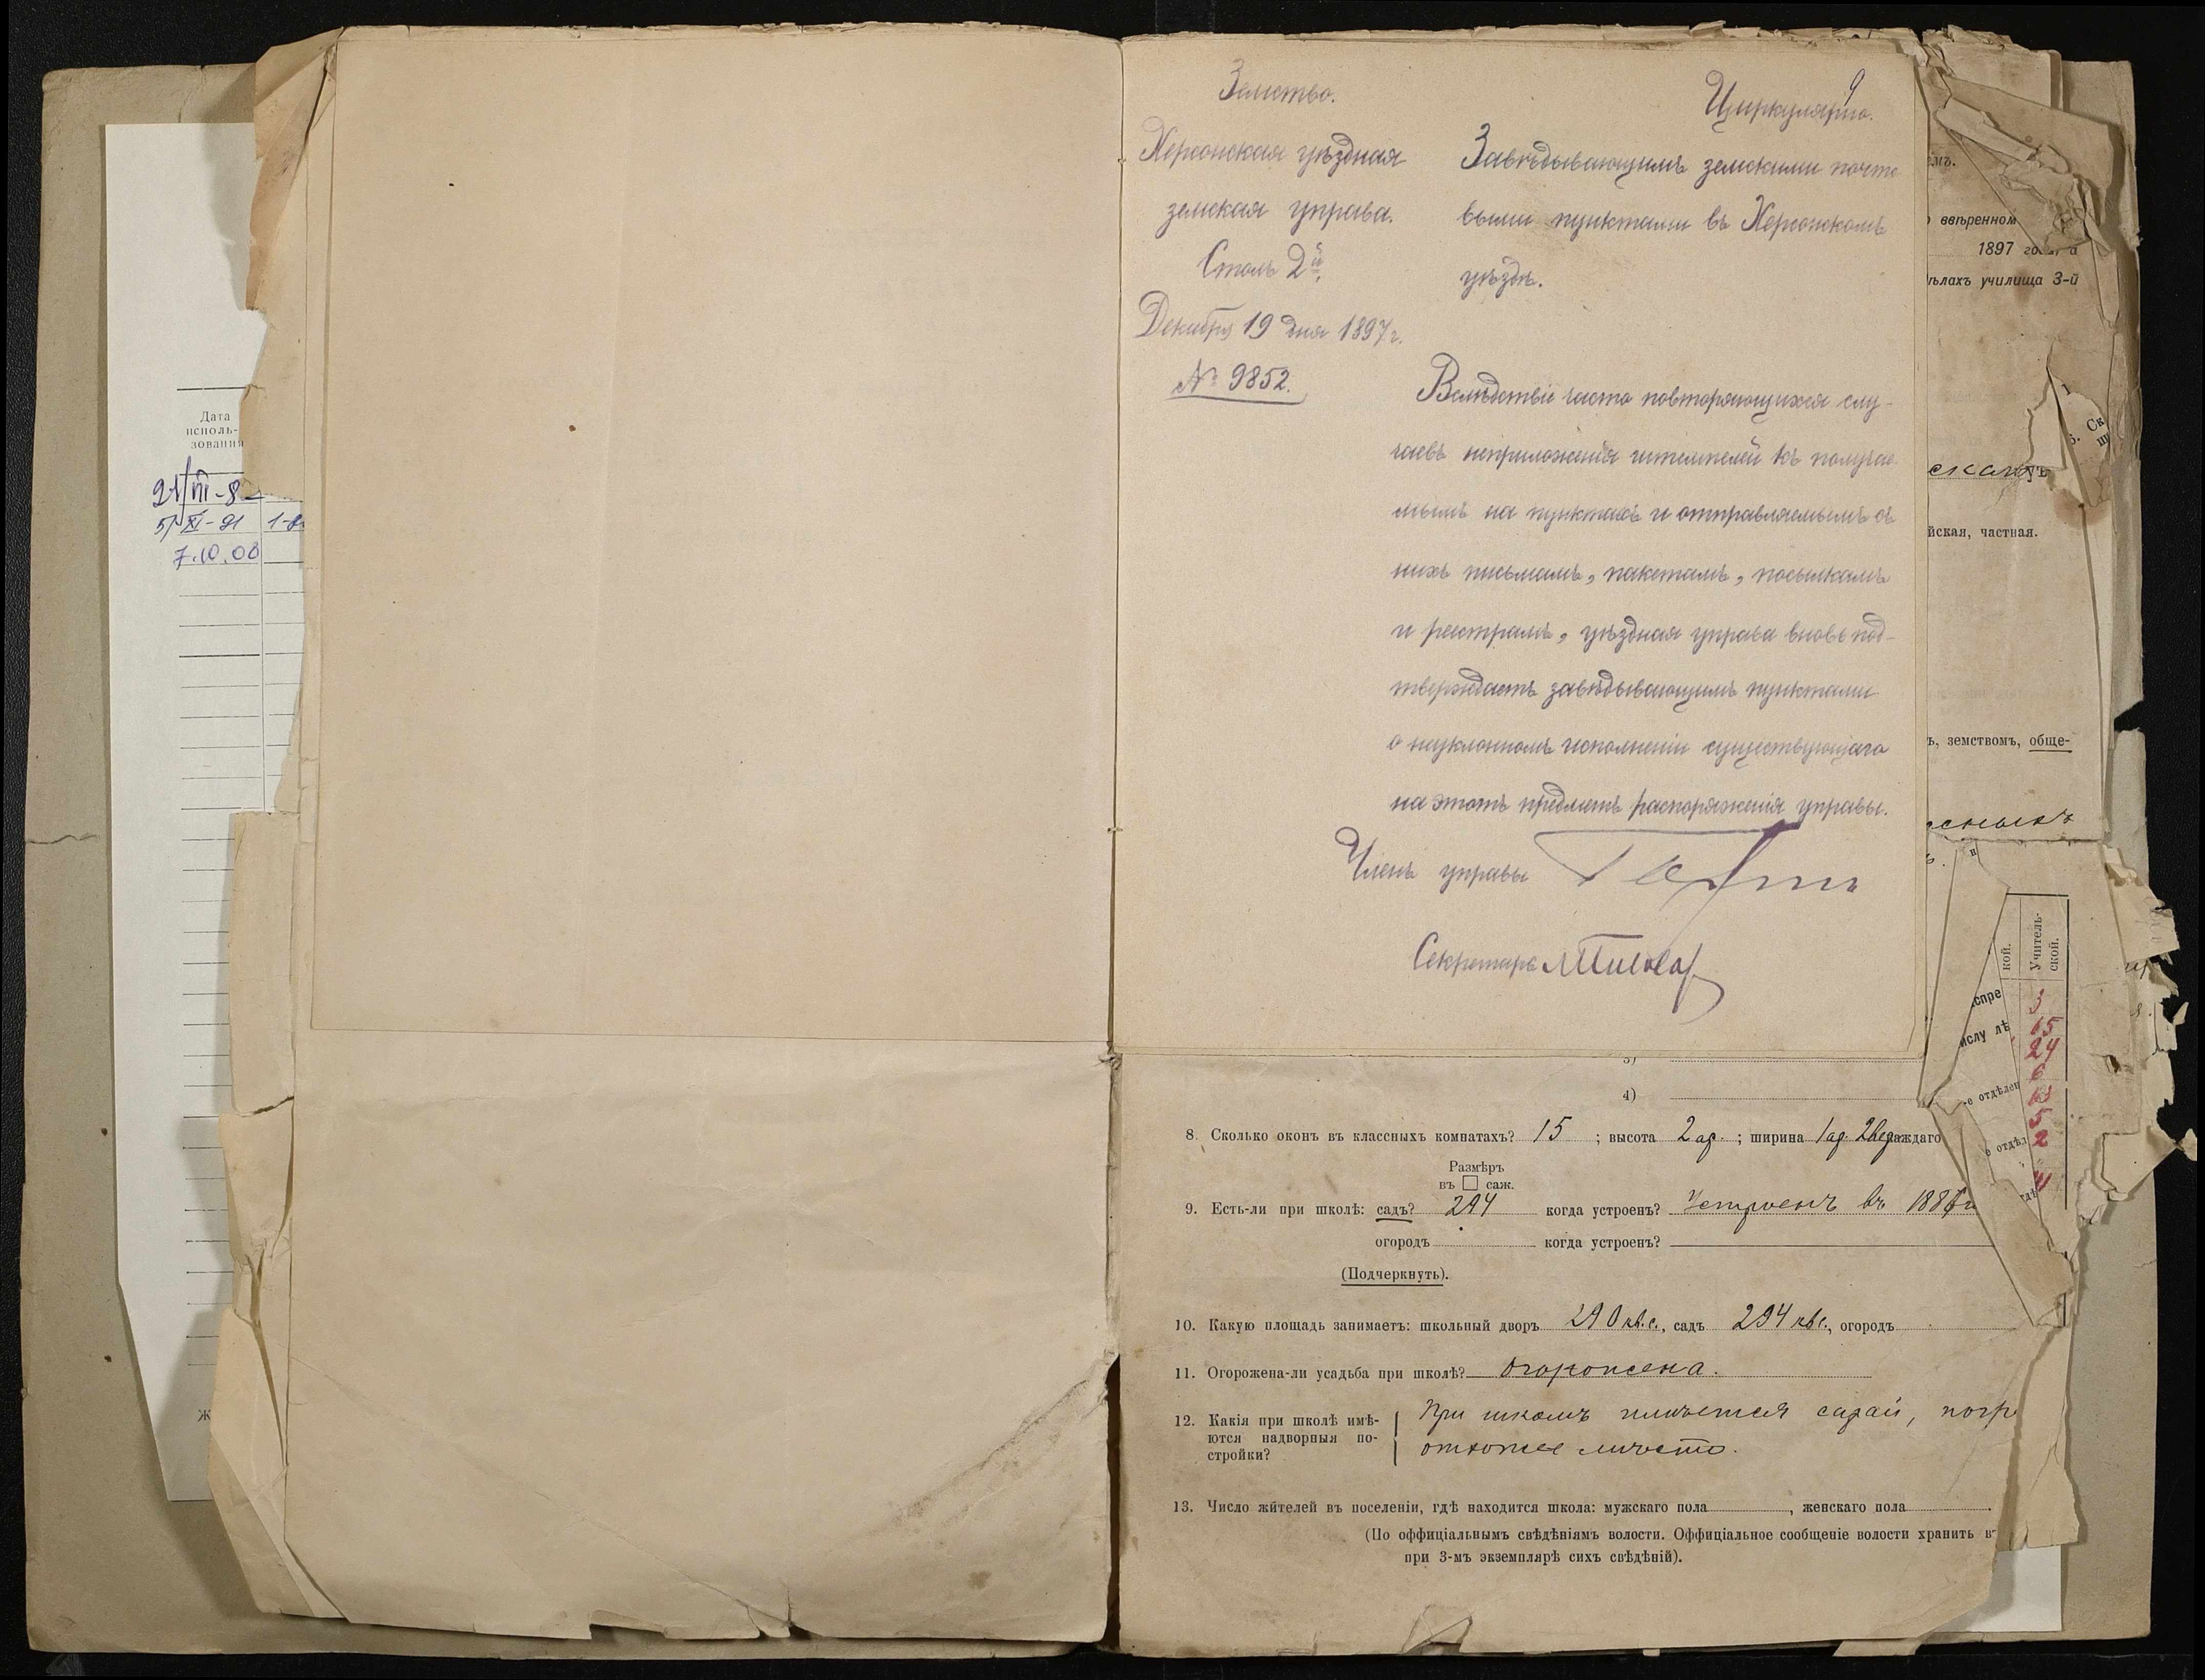 Дата
исполь-
зования
7.10.00
Ж
Земство.
Херсонская уѣздная
земская управа.
Столъ 2й.
Декабря 19 дня 1897 г.
№ 9852.
9
Циркулярно.
Завѣдывающимъ земскими почто
выми пунктами въ Херсонскомъ
уѣздѣ.
Вслѣдствіе часто повторяющихся слу-
чаевъ неприложенія штемпелей къ получае
мымъ на пунктахъ и отправляемымъ съ
нихъ письмамъ, пакетамъ, посылкамъ
и реестрамъ, уѣздная управа вновь под-
тверждаетъ завѣдывающимъ пунктами
о неуклонномъ исполненіи существующаго
на этотъ предметъ распоряженія управы.
Членъ управы
Секретарь
емъ.
ввѣренном
1897 го
ѣлахъ училища 3-й
йская, частная.
ъ, земствомъ, обще-
кой.
Учитель-
ской.
спре
ислу лѣ
е отдѣлен
о отдѣл
3)
4)
8. Сколько оконъ въ классныхъ комнатахъ? 15 ; высота 2 ар. ; ширина 1 ар. 2 вер. каждаго
Размѣръ
въ □ саж.
9. Есть-ли при школѣ: садъ? 294 когда устроенъ? Устроенъ въ
огородъ когда устроенъ?
(Подчеркнуть).
10. Какую площадь занимаетъ: школьный дворъ 290 кв.с., садъ 294 кв.с., огородъ
11. Огорожена-ли усадьба при школѣ? Огорожена.
12. Какія при школѣ имѣ-
ются надворныя по-
стройки?
При школѣ имѣется сарай, погр
отхожее мѣсто.
13. Число жителей въ поселеніи, гдѣ находится школа: мужскаго пола , женскаго пола .
(По оффиціальнымъ свѣдѣніямъ волости. Оффиціальное сообщеніе волости хранить в
при 3-мъ экземплярѣ сихъ свѣдѣній).